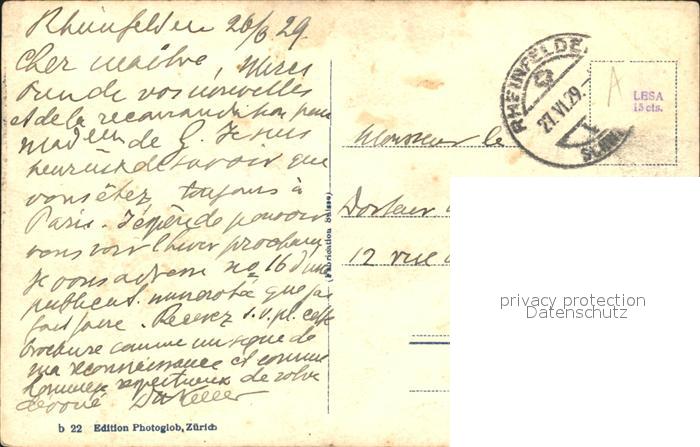 Rheinfelden 26/6 29
Cher maître, Merci
de vos nouvelles
et de la recommandation pour
Mad de G. Je suis
heureux de savoir que
vous êtes toujours à
Paris. J'espère de pouvoir
vous voir l'hiver prochain
Je vous adresse no 16 d'une
publicat. numerotée que j'ai
fait faire. Recevez s.v.pl. cette
brochure comme un signe de
ma reconnaissance et comme
hommage respectueux de votre
dévoué Dr Keller
b 22 Edition Photoglob, Zürich
(Fabrication Suisse)
RHEINFELDE
9
27.VI.29.-
A
LESA
15 cts.
Monsieur le
Docteur
12 rue
privacy protection
Datenschutz